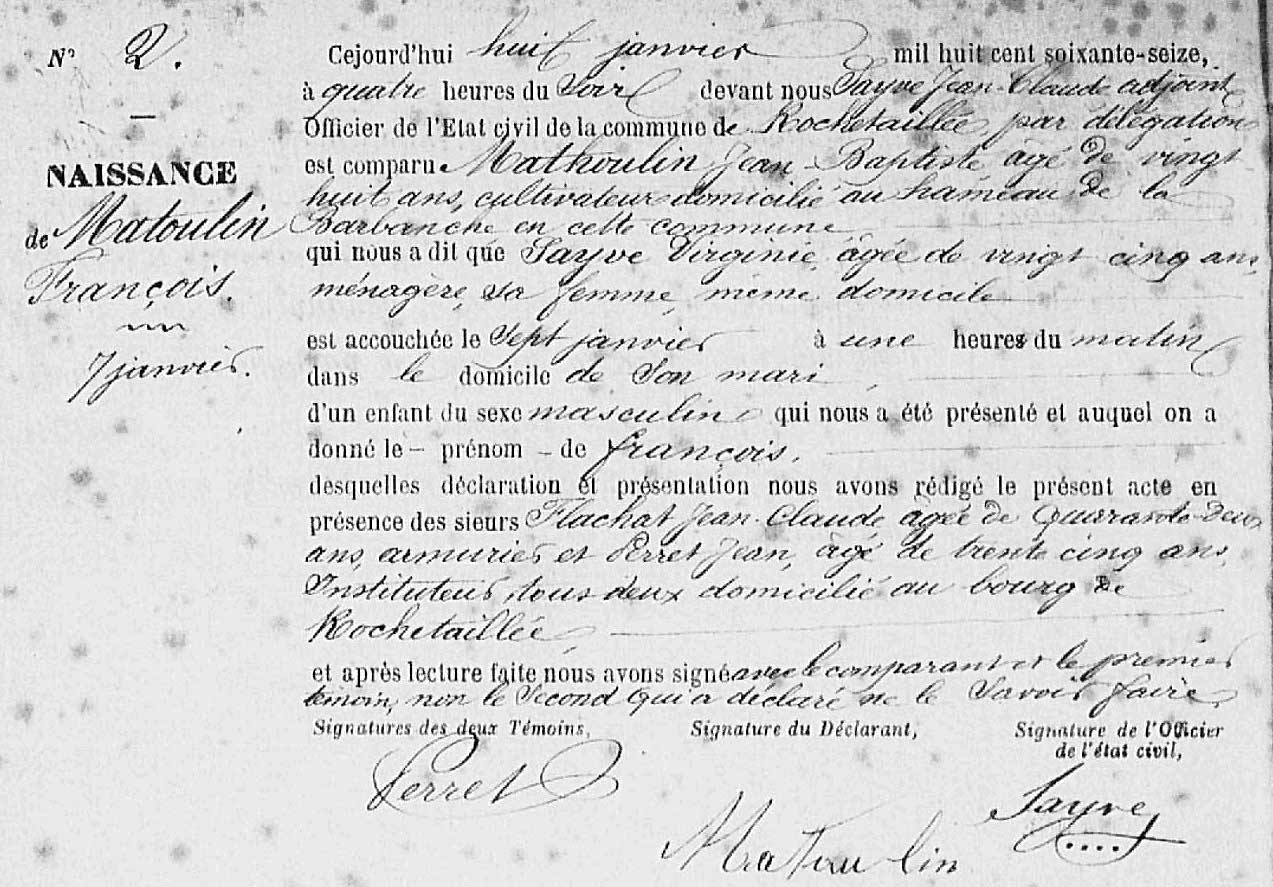 N° 2.
NAISSANCE
de Matoulin
François.
7 janvier.
Cejourd'hui huit janvier mil huit cent soixante-seize,
à quatre heures du Soir devant nous Sayve Jean-Claude adjoint
Officier de l'Etat civil de la commune de Rochetaillée, par délégation
est comparu Mathoulin Jean-Baptiste âgé de vingt
huit ans, cultivateur domicilié au hameau de la
Barbanche en cette commune
qui nous a dit que Sayve Virginie, âgée de vingt cinq ans,
ménagère, sa femme, même domicile
est accouchée le Sept janvier à une heures du matin
dans le domicile de Son mari,
d'un enfant du sexe masculin qui nous a été présenté et auquel on a
donné le – prénom – de françois,
desquelles déclaration et présentation nous avons rédigé le présent acte en
présence des sieurs Flachat Jean-Claude âgée de Quarante-Deux
ans, armurier et Perret Jean, âgé de trente cinq ans,
Instituteur, tous deux domicilié au bourg de
Rochetaillée
et après lecture faite nous avons signé avec le comparant et le premier
temoin, non le Second Qui a déclaré ne le Savoir faire
Signatures des deux Témoins, Signature du Déclarant, Signature de l'Officier
de l'état civil,
Perret
Sayve
Matoulin